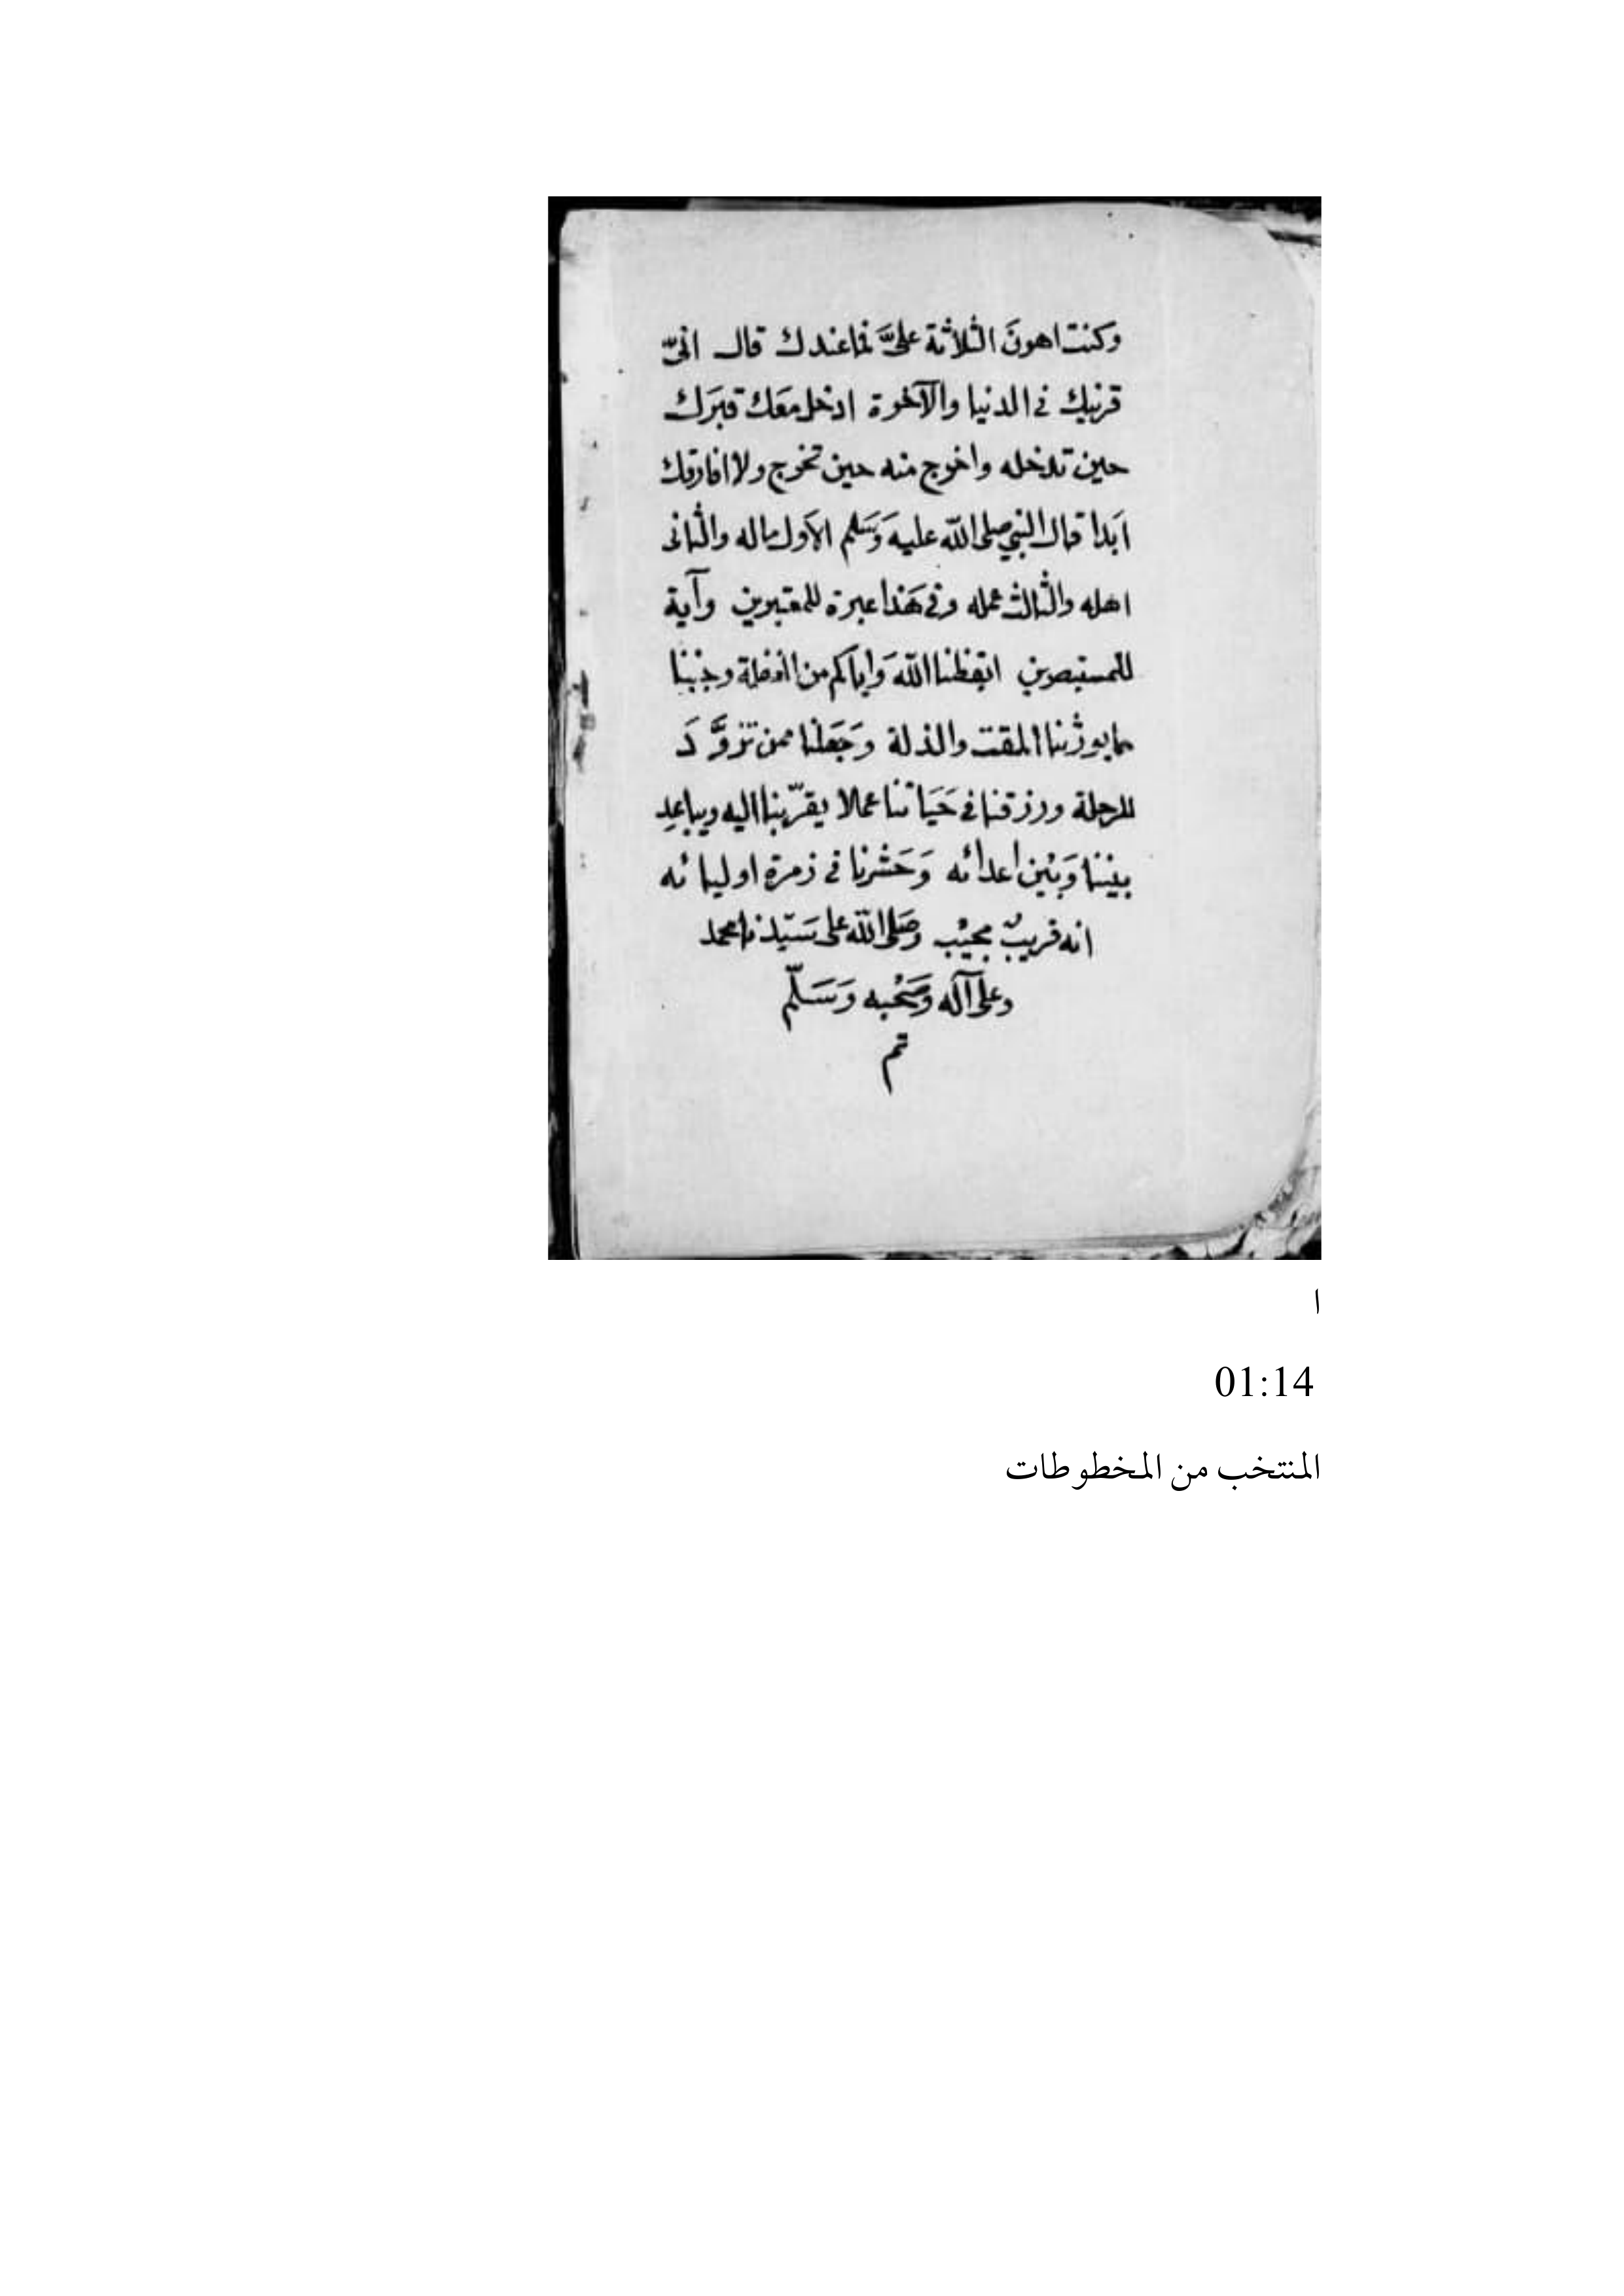 وكنت اهونَ الثلاثة علىَّ فما عندك قال انىّ
قرينك فى الدنيا والآخرة ادخل معَك قبرَك
حين تدخله واخرج منه حين تخرج ولا افارقك
اَبدا قال النبي صلى الله عليه وَسَلم الاَول ماله والثانى
اهله والثالث عمله وفى هَذا عبرة للمعتبرين وآية
للمستبصرين ايقظنا اللهَ وَاياكم من الغفلة وجنبنا
مما يورثنا المقت والذلة وَجَعَلنا ممن تزوَّدَ
للرحلة ورزقنا فى حَيَاتنا عملا يقرّبنا اليه ويباعدِ
بيننا وَبَيْن اعدائه وَحَشرنا فى زمرة اوليائه
انه قريبٌ مجيْب وصَلى الله على سَيّدنا محمد
وعلى آله وَصَحْبه وَسَلّم
تم
ا
01:14
المنتخب من المخطوطات